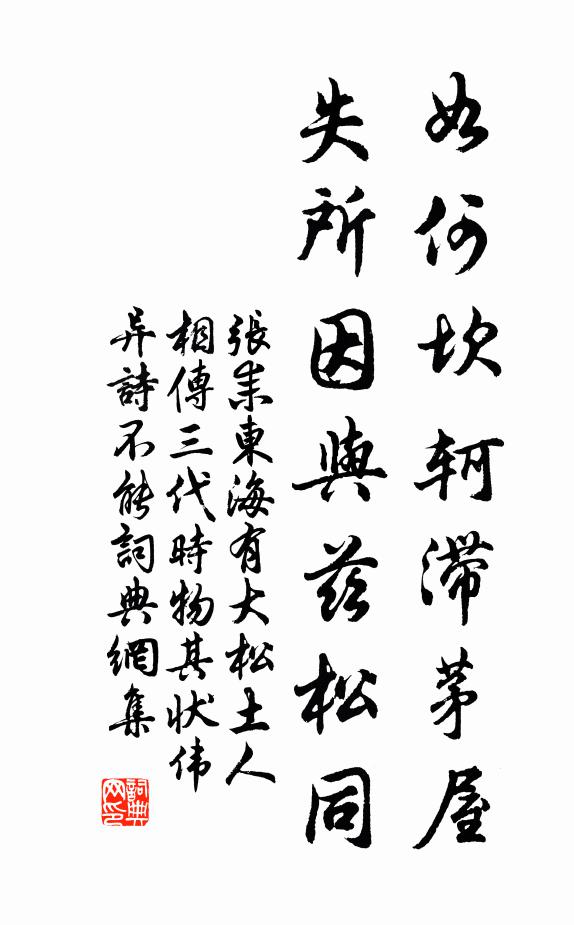 如何坎轲滞茅屋
失所因與茲松同
張耒東海有大松土人
相傳三代時物其状伟
异詩不能詞典網集
詞典網印